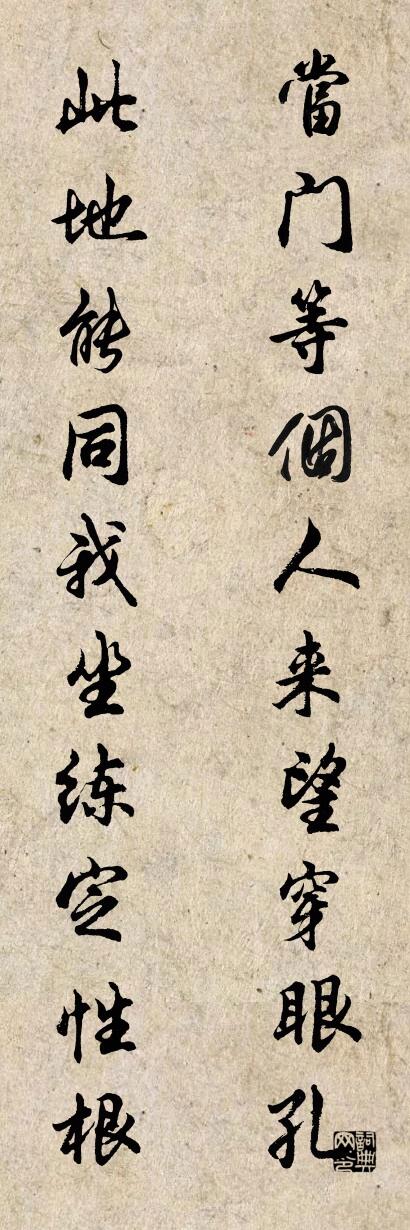 當门等個人来望穿眼孔
此地能同我坐练定性根
詞典网印